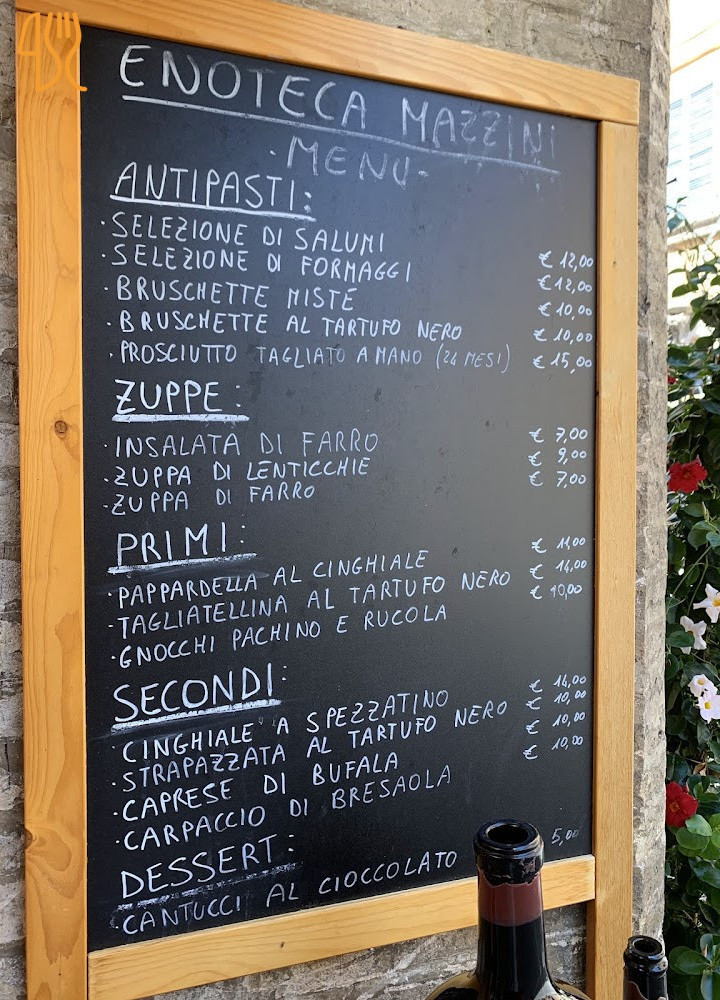 ENOTECA MAZZINI
·MENU·
ANTIPASTI:
·SELEZIONE DI SALUMI € 12,00
·SELEZIONE DI FORMAGGI € 12,00
·BRUSCHETTE MISTE € 10,00
·BRUSCHETTE AL TARTUFO NERO € 10,00
·PROSCIUTTO TAGLIATO A MANO (24 MESI) € 15,00
ZUPPE:
·INSALATA DI FARRO € 7,00
·ZUPPA DI LENTICCHIE € 9,00
·ZUPPA DI FARRO € 7,00
PRIMI:
·PAPPARDELLA AL CINGHIALE € 11,00
·TAGLIATELLINA AL TARTUFO NERO € 14,00
·GNOCCHI PACHINO E RUCOLA € 10,00
SECONDI:
·CINGHIALE A SPEZZATINO € 14,00
·STRAPAZZATA AL TARTUFO NERO € 10,00
·CAPRESE DI BUFALA € 10,00
·CARPACCIO DI BRESAOLA € 10,00
DESSERT:
·CANTUCCI AL CIOCCOLATO 5,00